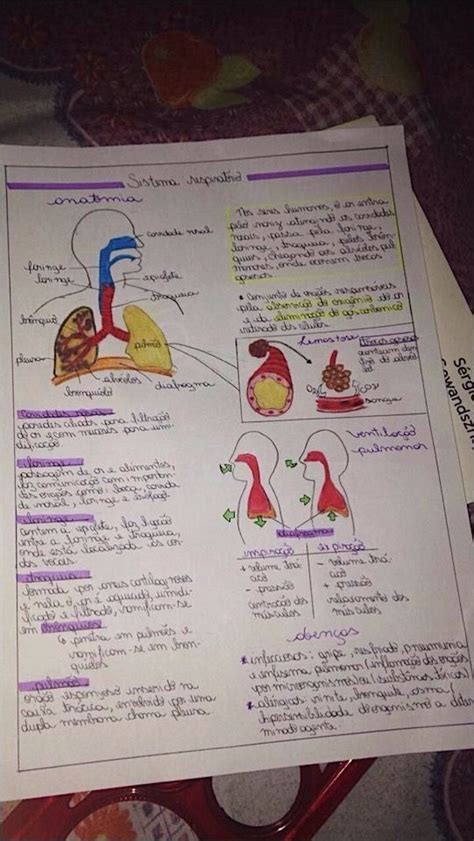 Sistema respiratório
anatomia
cavidade nasal
faringe
laringe
epiglote
traqueia
brônquio
pulmão
pleura
bronquíolo
alvéolos
diafragma
Nos seres humanos, o ar entra
pelo nariz
nasais, passa pela faringe,
laringe, traqueia, pelos brôn-
quios, chegando aos alvéolos pul-
monares, onde ocorrem trocas
gasosas
• Conjunto de órgãos responsáveis
pela absorção do oxigênio do ar
e da eliminação do gás carbônico
retirado das células.
Hematose
trocas gasosas
sangue
Sérgio
ventilação
pulmonar
diafragma
inspiração
+ volume torá
- pressão
contração dos
músculos
expiração
- volume torá
+ pressão
relaxamento dos
músculos
Cavidades nasais
paredes ciliadas para filtração
do ar e com mucosas para um-
dificação
faringe
passagem de ar e alimentos,
faz comunicação com
dos órgãos como: boca, cavida
de nasal, laringe e esôfago
laringe
contém a epiglote, faz ligação
entre a faringe e traqueia,
onde está localizada as cor
das vocais.
traqueia
formada por anéis cartilaginosos
e nela o ar é aquecido, umidi-
ficado e filtrado, ramificam-se
em brônquios
penetra em pulmões e
ramificam-se em bron-
quíolos
pulmão
órgão esponjoso inserido na
caixa torácica, envolvido por uma
dupla membrana chama pleura.
doenças
infecciosas: gripe, resfriado, pneumonia
e enfisema pulmonar (inflamação dos órgãos
por microrganismos ou substâncias tóxicas)
alergias: rinite, bronquite, asma (
hipersensibilidade do organismo a deter
minado agente.